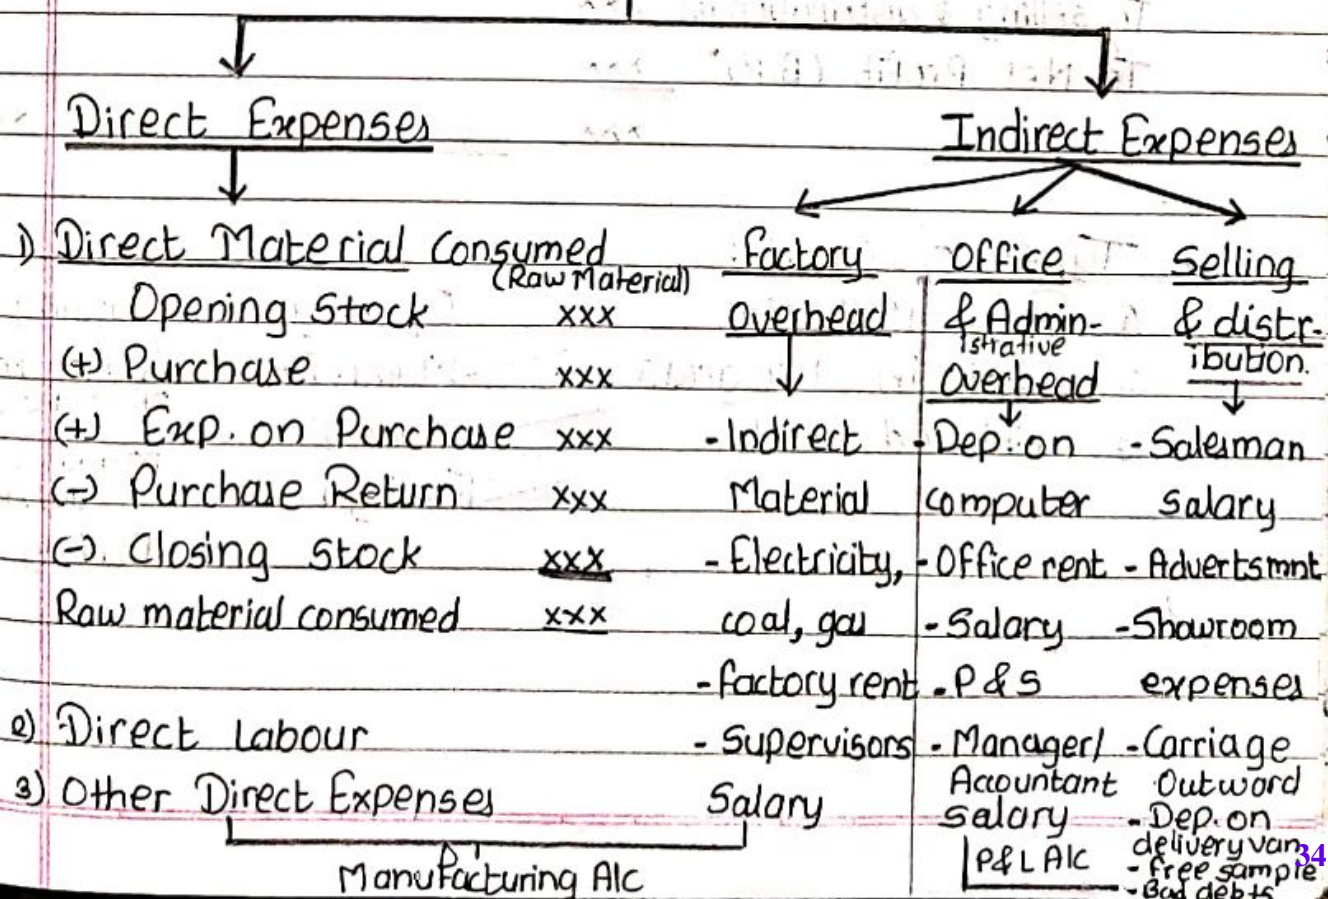 Direct Expenses
Indirect Expenses
1) Direct Material Consumed
(Raw Material)
Opening Stock xxx
(+) Purchase xxx
(+) Exp. on Purchase xxx
(-) Purchase Return xxx
(-) Closing Stock xxx
Raw material consumed xxx
2) Direct Labour
3) Other Direct Expenses
Factory
Overhead
- Indirect
Material
- Electricity,
coal, gas
- factory rent
- Supervisors
Salary
Manufacturing A/c
Office
& Admin-
istrative
Overhead
- Dep. on
computer
- Office rent
- Salary
- P & S
- Manager/
Accountant
salary
P&L A/c
Selling
& distr-
ibution.
- Salesman
salary
- Advertsmnt
- Showroom
expenses
- Carriage
Outword
- Dep. on
delivery van
- free sample
- Bad debts
34